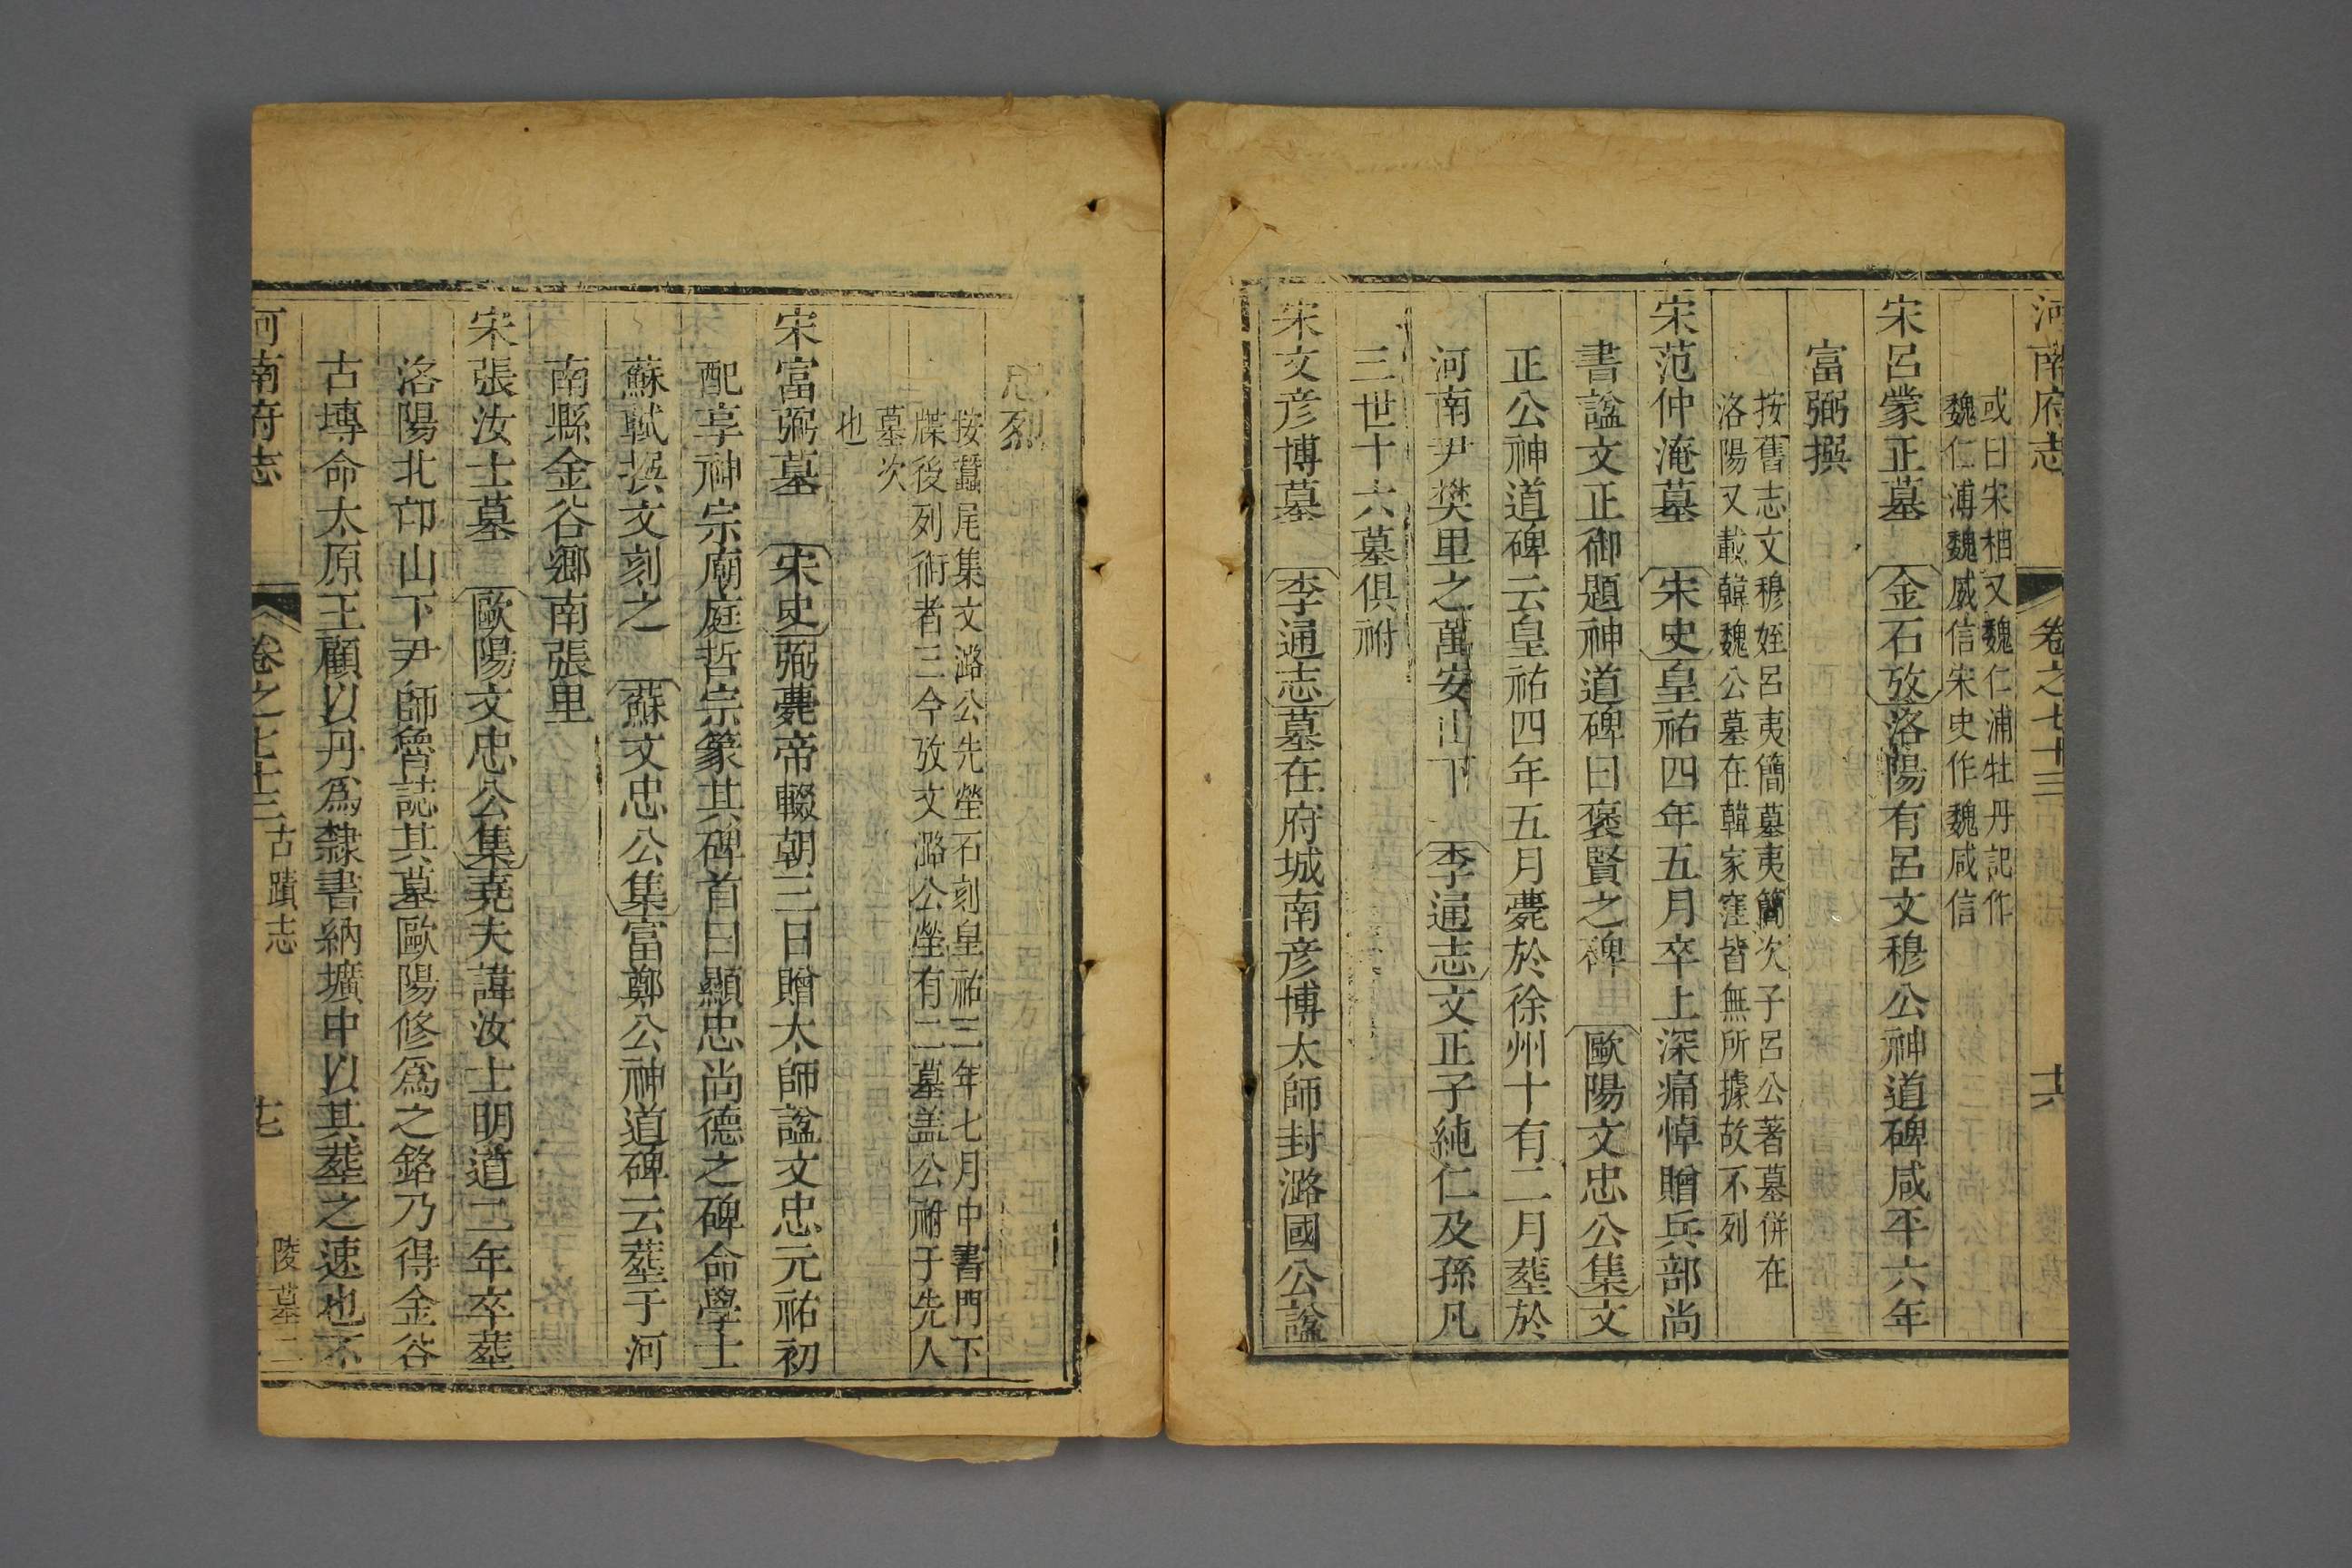 河南府志 卷之七十三 十六
或曰宋相又魏仁浦牡丹記作
魏仁溥魏威信宋史作魏咸信
宋呂蒙正墓 金石攷洛陽有呂文穆公神道碑咸平六年
富弼撰
按舊志文穆姪呂夷簡墓夷簡次子呂公著墓併在
洛陽又載韓魏公墓在韓家窪皆無所據故不列
宋范仲淹墓 宋史皇祐四年五月卒上深痛悼贈兵部尚
書諡文正御題神道碑曰褒賢之碑 歐陽文忠公集文
正公神道碑云皇祐四年五月薨於徐州十有二月塟於
河南尹樊里之萬安山下 李通志文正子純仁及孫凡
三世十六墓俱祔
宋文彦博墓 李通志墓在府城南彦博太師封潞國公諡
忠烈
按蠶尾集文潞公先塋石刻皇祐三年七月中書門下
牒後列術者三今攷文潞公塋有二墓盖公祔于先人
墓次
也
宋富弼墓 宋史弼薨帝輟朝三日贈太師諡文忠元祐初
配享神宗廟庭哲宗篆其碑首曰顯忠尚德之碑命學士
蘇軾撰文刻之 蘇文忠公集富鄭公神道碑云塟于河
南縣金谷鄉南張里
宋張汝士墓 歐陽文忠公集堯夫諱汝士明道二年卒塟
洛陽北邙山下尹師魯誌其墓歐陽修爲之銘乃得金谷
古塼命太原王顧以丹爲隸書納壙中以其塟之速也不
河南府志 卷之七十三 古蹟志 十七 陵墓二